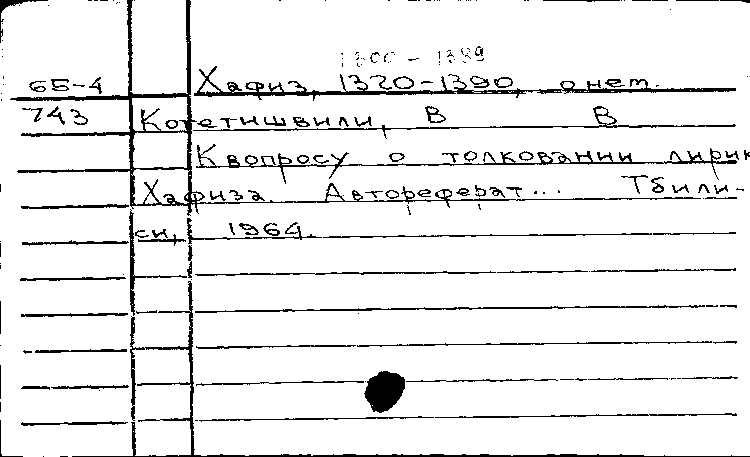 1300 - 1389
65-4 Хафиз, 1320-1390, о нем.
743 Котетишвили, В В
К вопросу о толковании лирик
Хафиза. Автореферат... Тбили-
си, 1964.